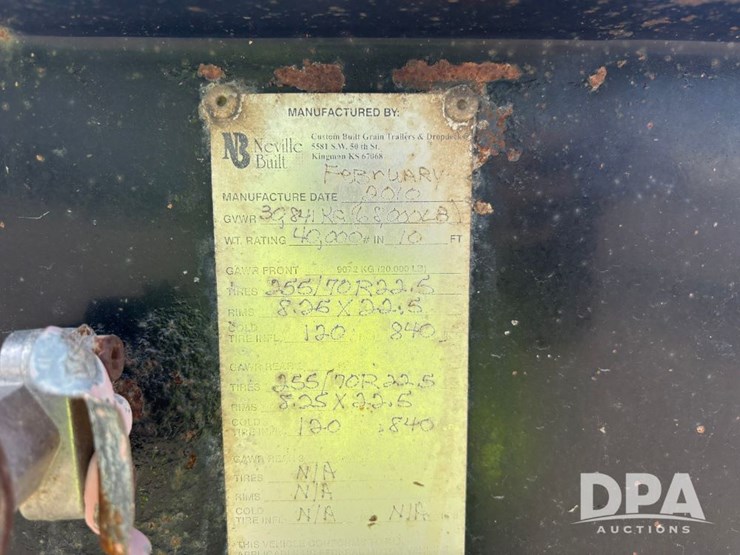 MANUFACTURED BY:
NB Neville Built
Custom Built Grain Trailers & Dropdecks
5581 S.W. 50 th St.
Kingman KS 67068
FEBRUARY
MANUFACTURE DATE 2010
GVWR 30,841 KG (68,000LB)
WT. RATING 40,000# IN 10 FT
GAWR FRONT 9072 KG (20,000 LB)
TIRES 255/70R22.5
RIMS 8.25X22.5
COLD
TIRE INFL. 120 840
GAWR
TIRES 255/70R22.5
RIMS 8.25X22.5
COLD
TIRE INFL 120 840
GAWR
TIRES N/A
RIMS N/A
COLD
TIRE INFL N/A N/A
THIS VEHICLE
DPA
AUCTIONS